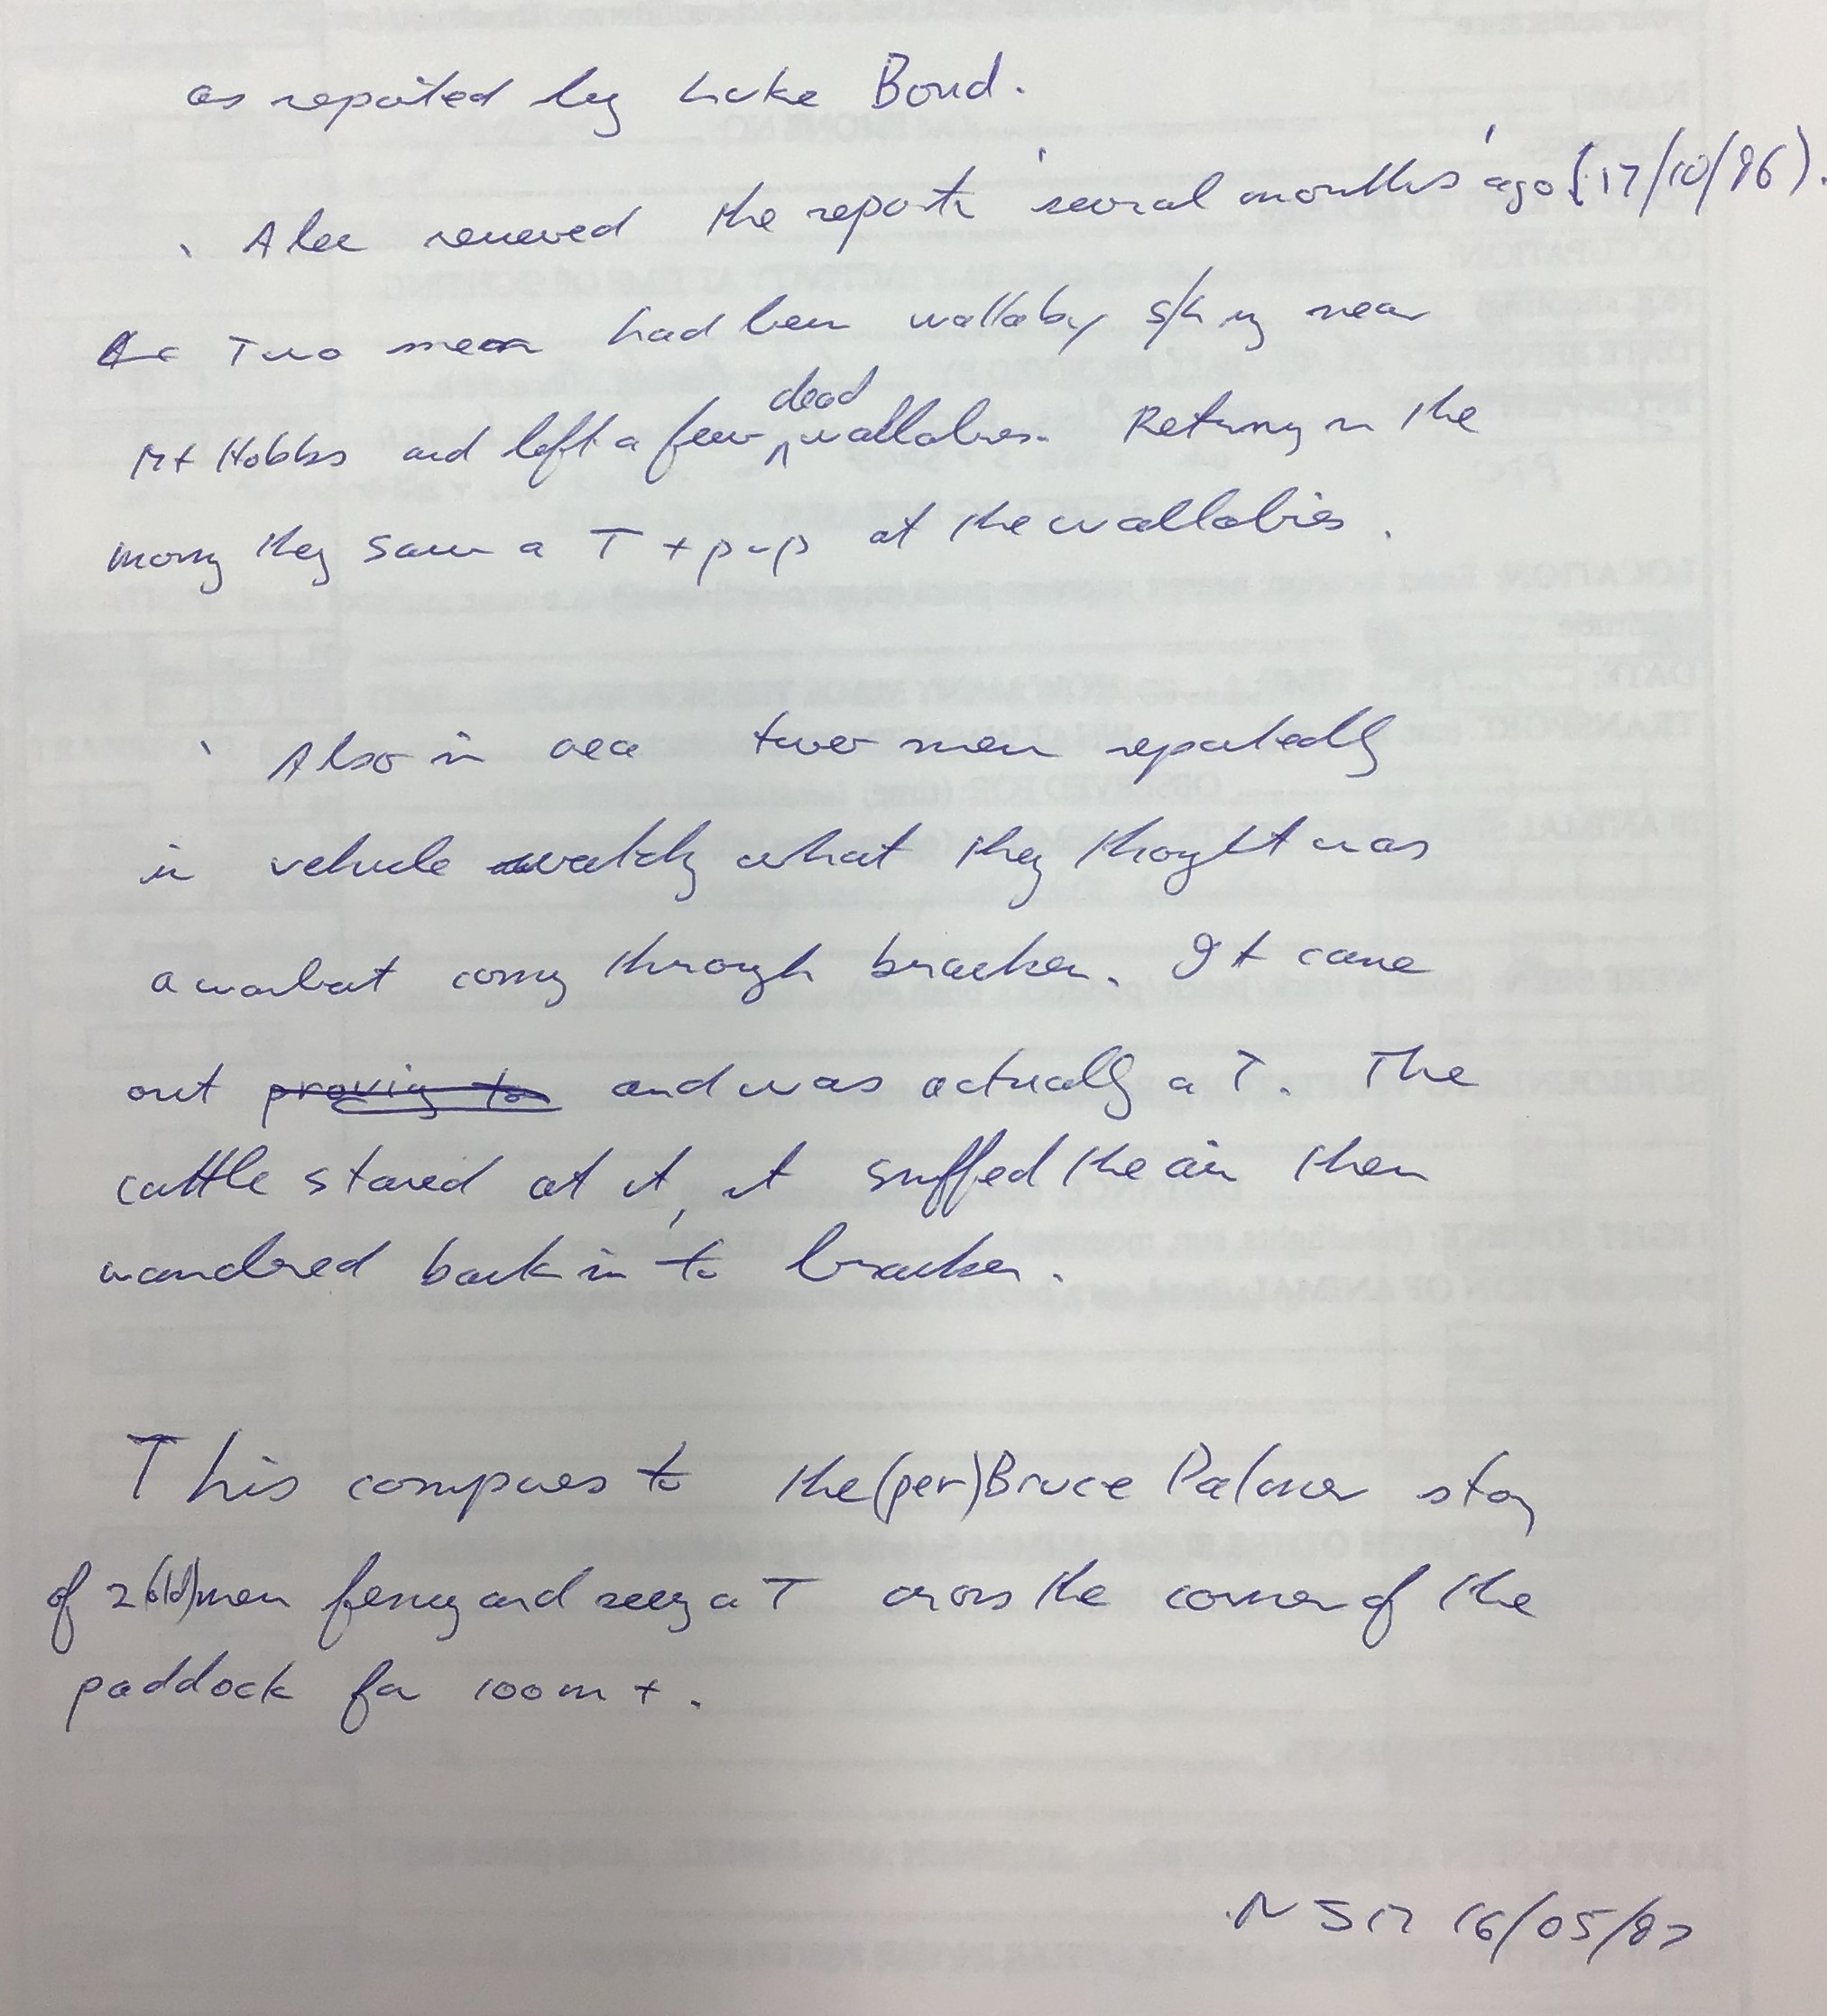 as reported by Luke Bond.
Alec renewed the reports 'several months' ago (17/10/86).
Two men had been wallaby s/h ing near
Mt Hobbs and left a few dead wallabies. Returning in the
morning they saw a T + pup at the wallabies.
Also in area two men reportedly
in vehicle watchg what they thought was
a wombat coming through bracken. It came
out proving to and was actually a T. The
cattle stared at it, it sniffed the air then
wandered back in to bracken.
This compares to the (per) Bruce Palmer story
of 2 (old) men fencing and seeing a T cross the corner of the
paddock for 100m +.
16/05/87